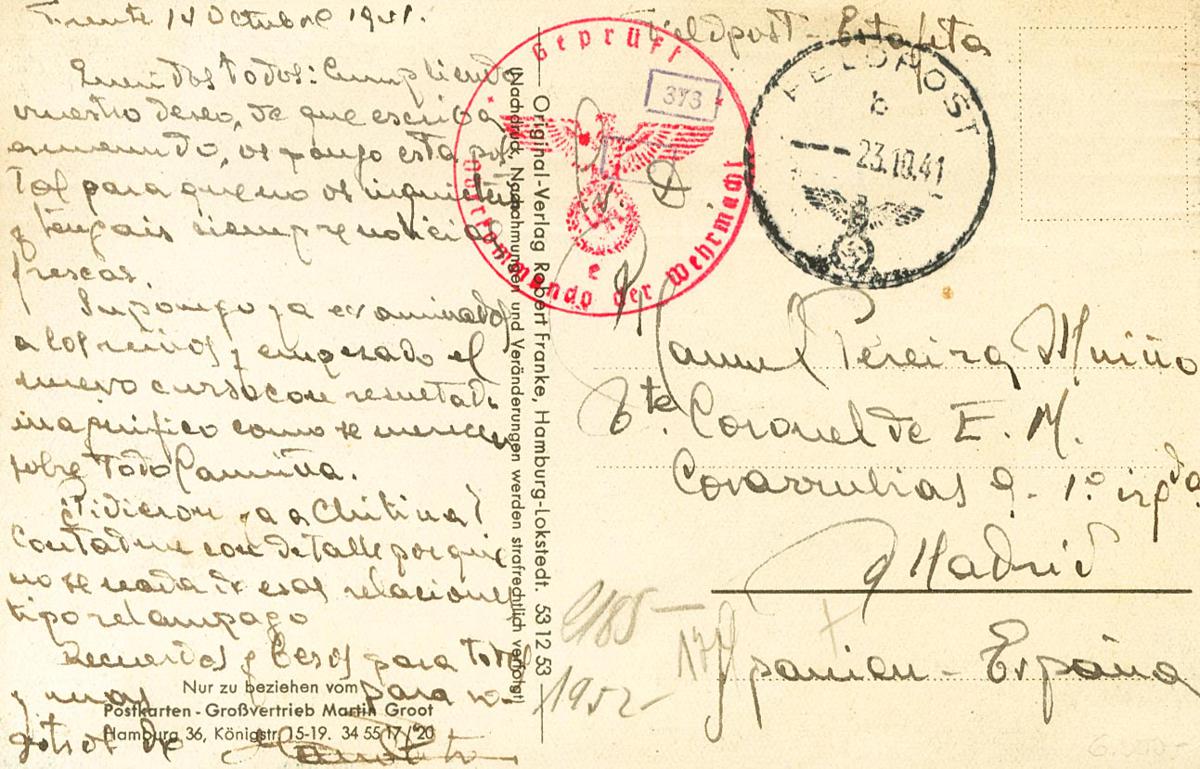 Frente 14 Octubre 1941.
Queridos todos: Cumpliendo
vuestro deseo, de que escriba
a menudo, os pongo esta pos
tal para que no os inquieteis
y tengais siempre noticias
frescas.
Supongo ya examinados
a los niños y empezado el
nuevo curso con resultado
magnifico como se merecen
sobre todo
¿Pidieron ya a Chitina?
Contadme con detalle porque
no se nada de esas relaciones
tipo relampago
Recuerdos y besos para todos
y unos para vo-
sotros de
Nur zu beziehen vom
Postkarten-Großvertrieb Martin Groot
Hamburg 36, Königstr. 15-19. 34 55 17/20
Original-Verlag Robert Franke, Hamburg-Lokstedt. 53 12 53
(Nachdruck, Nachahmungen und Veränderungen werden strafrechtlich verfolgt)
Feldpost - Estafeta
Geprüft
Oberkommando der Wehrmacht
e
373
FELDPOST
b
23.10.41
Manuel Pereira Muiño
Tte. Coronel de E. M.
Covarrubias 9 - 1º izqda
Madrid
Spanien - España
1952-